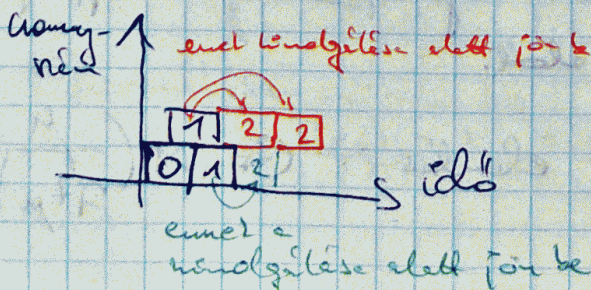 csomag-
szám
ennek kiszolgálása alatt jön be
1 2 2
0 1 2
idő
ennek a
kiszolgálása alatt jön be